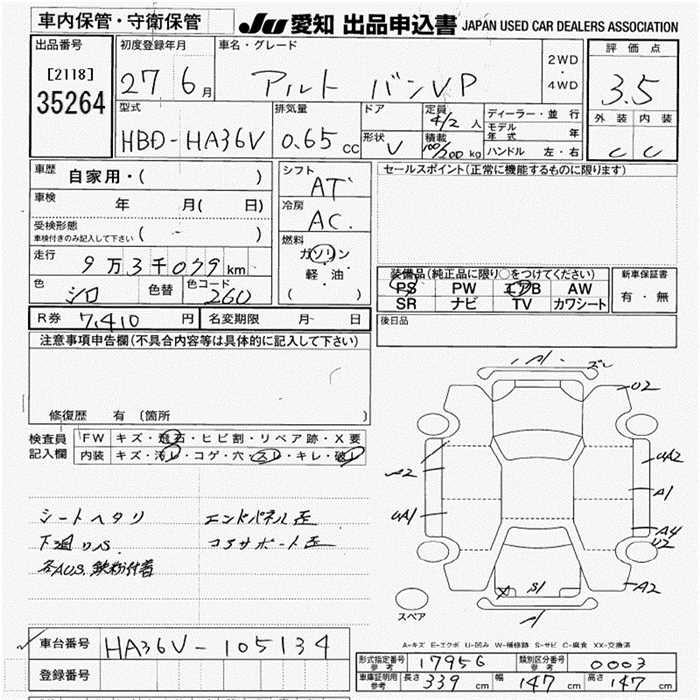 車内保管・守衛保管
JU 愛知 出品申込書 JAPAN USED CAR DEALERS ASSOCIATION
出品番号
[2118]
35264
初度登録年月
27年6月
車名・グレード
アルト バンVP
2WD
・
4WD
評価点
3.5
外装 内装
C C
型式
HBD-HA36V
排気量
0.65 cc
ドア
形状
V
定員
4/2 人
積載
100/200 kg
ディーラー・並行
モデル年式 年
ハンドル 左・右
車歴
自家用・( )
車検
年 月( 日)
受検形態
車検付きのみ記入して下さい ( )
走行
9万3千079km
色
シロ
色替
色コード
26U
シフト
AT
冷房
AC
燃料
ガソリン
軽・油
( )
セールスポイント(正常に機能するものに限ります)
装備品(純正品に限り○をつけてください)
PS PW エアB AW
SR ナビ TV カワシート
新車保証書
有・無
後日品
R券 7,410 円
名変期限 月 日
注意事項申告欄(不具合内容等は具体的に記入して下さい)
修復歴 有(箇所
検査員
記入欄
FW キズ・飛石・ヒビ割・リペア跡・X要
内装 キズ・汚レ・コゲ・穴・スレ・キレ・破レ
シートヘタリ エンドパネル歪
下廻りS コアサポート歪
各AUS、鉄粉付着
A1 ズレ
U2
UA2
A1
A4
U2
A2
UA1
S1
スペア
A-キズ E-エクボ U-凹み W-補修跡 S-サビ C-腐食 XX-交換済
車台番号 HA36V-105134
登録番号
形式指定番号
参考
17956
類別区分番号
参考
0003
車庫証明用
参考
長さ 339 cm 幅 147 cm 高さ 147 cm